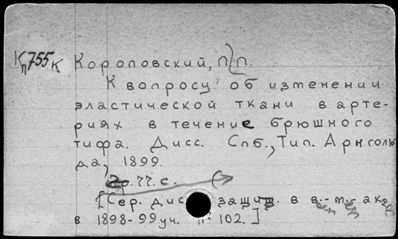 Кп755к Короповский, П.П.
К вопросу об изменении
эластической ткани в арте-
риях в течение брюшного
тифа. Дисс. Спб., Тип. Арнголь
да, 1899.
77.с.
[Сер. дис защищ. в в.-м. акад
в 1898-99 уч. 102.]